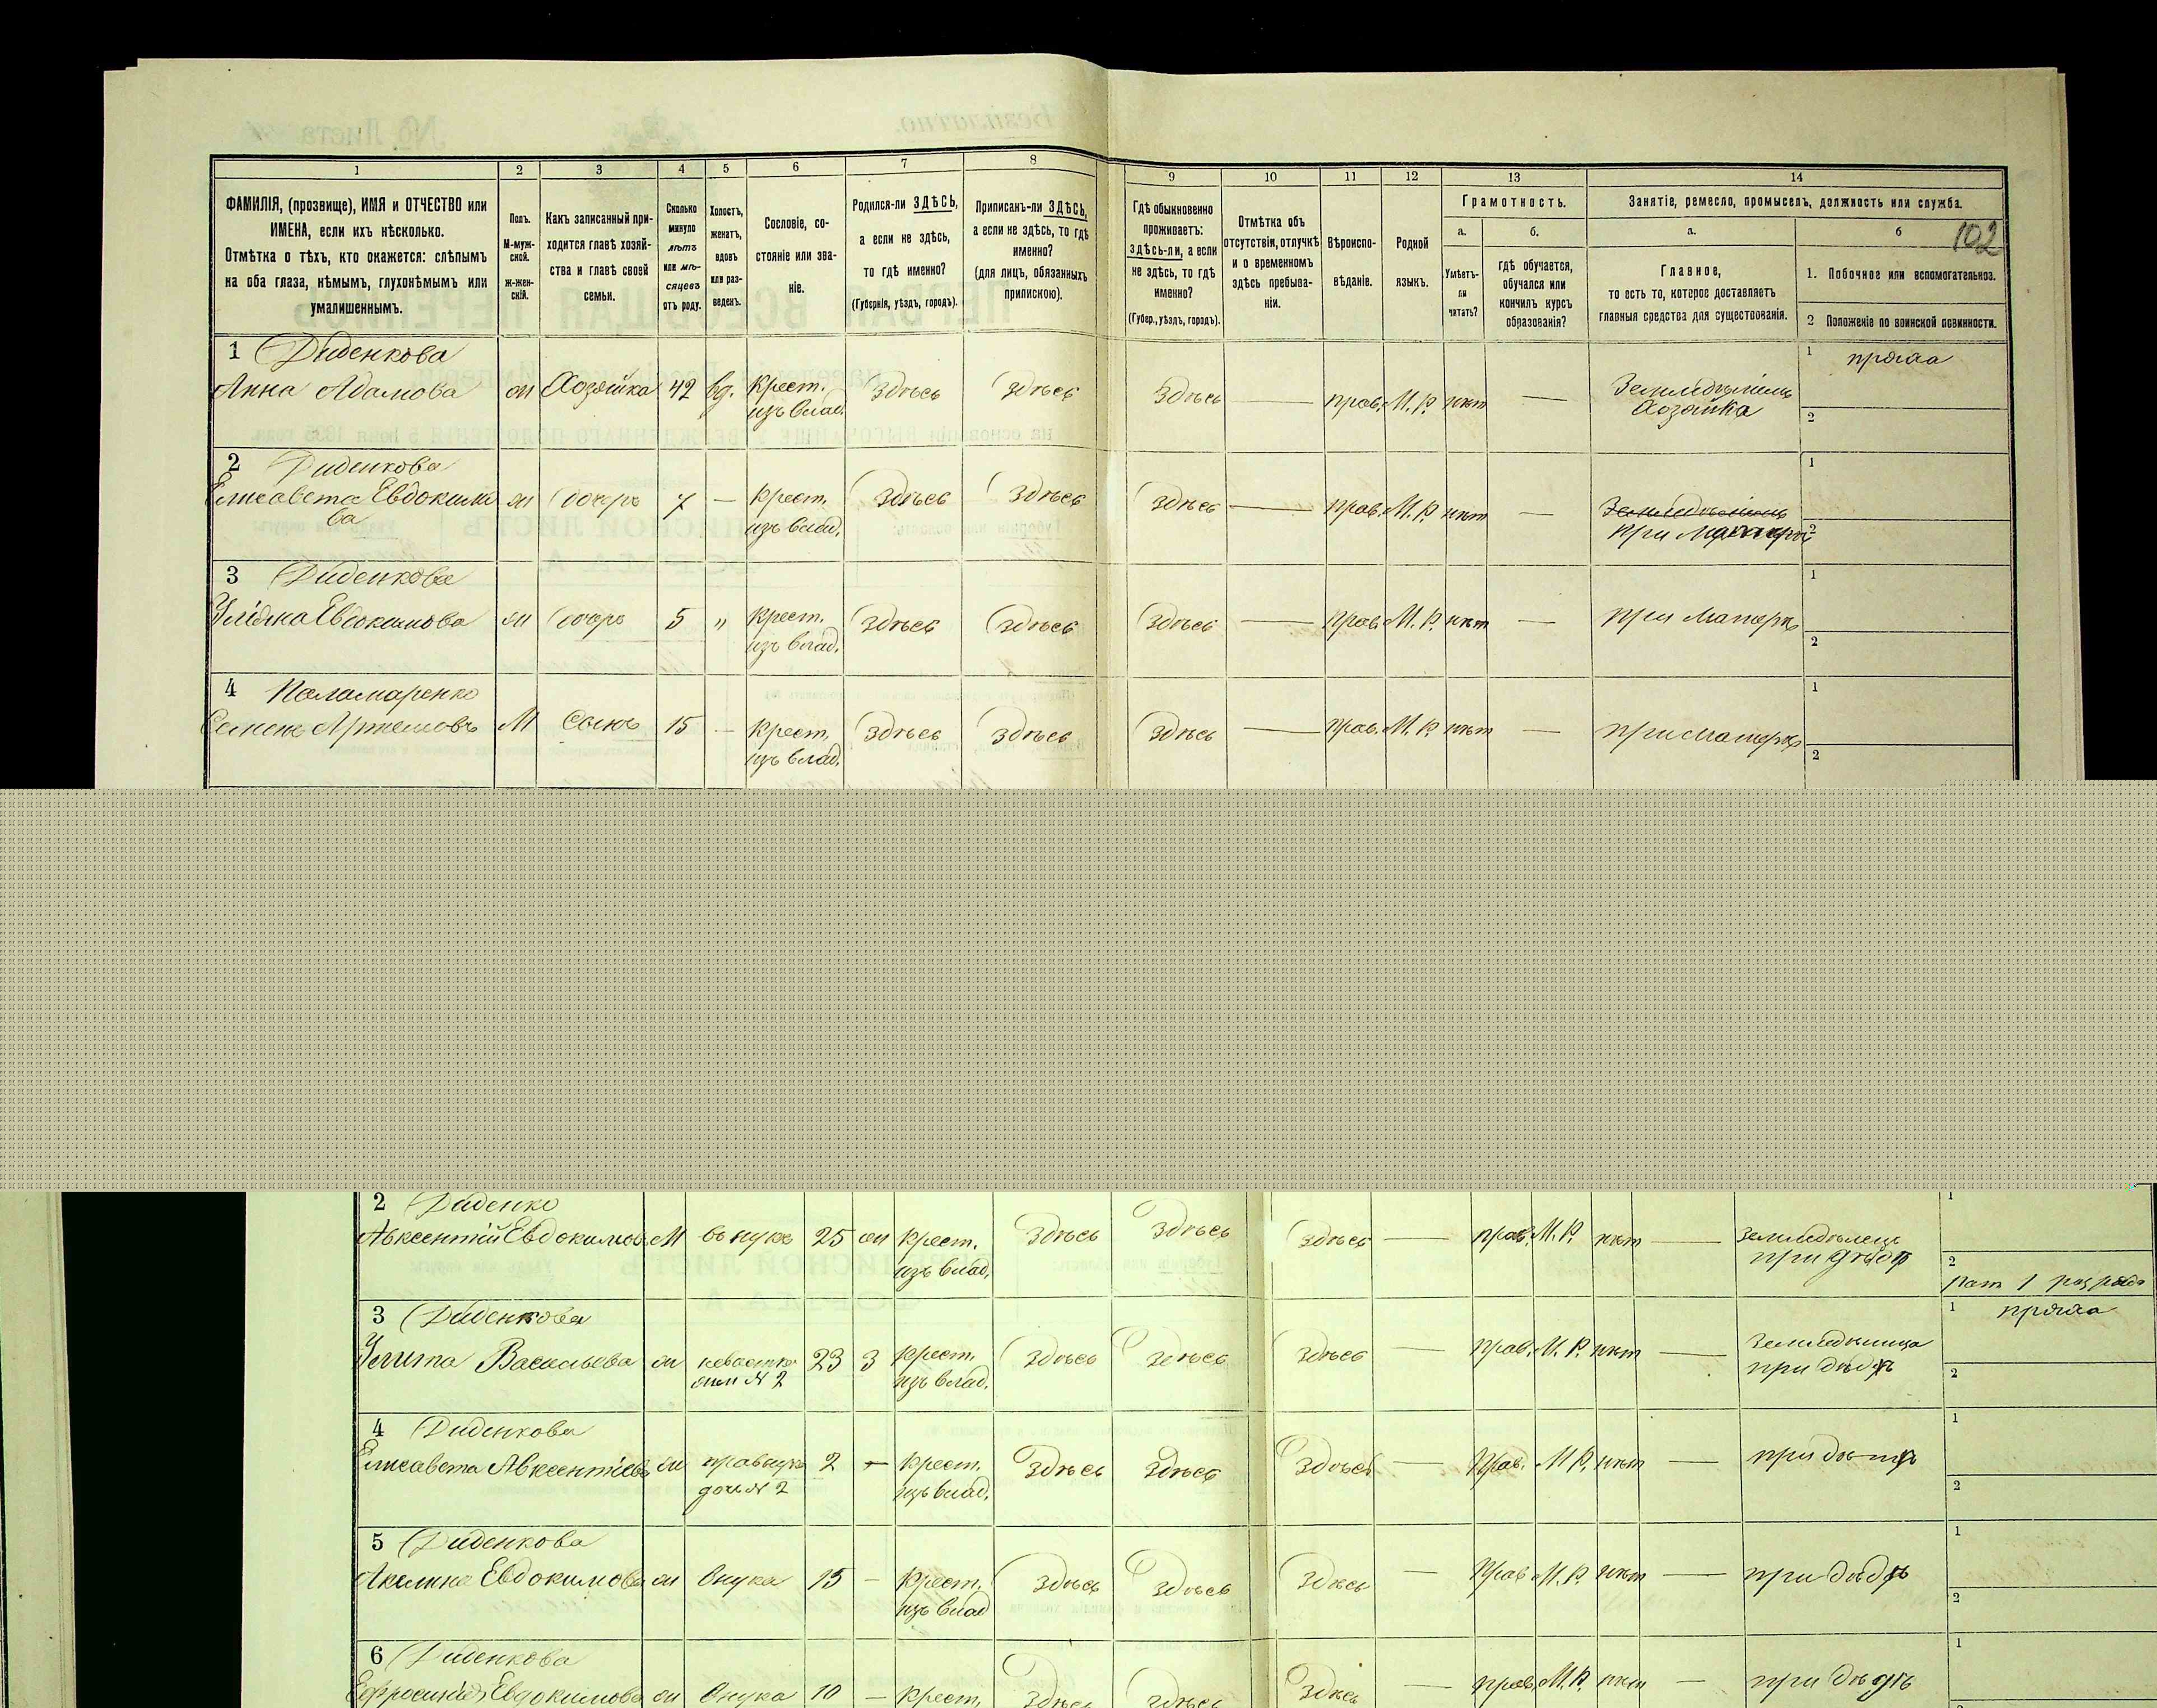 1 2 3 4 5 6 7 8 9 10 11 12 13 14
ФАМИЛІЯ, (прозвище), ИМЯ и ОТЧЕСТВО или
ИМЕНА, если ихъ нѣсколько.
Отмѣтка о тѣхъ, кто окажется: слѣпымъ
на оба глаза, нѣмымъ, глухонѣмымъ или
умалишеннымъ.
Полъ.
М-муж-
ской.
Ж-жен-
скій.
Какъ записанный при-
ходится главѣ хозяй-
ства и главѣ своей
семьи.
Сколько
минуло
лѣтъ
или мѣ-
сяцевъ
отъ роду.
Холостъ,
женатъ,
вдовъ
или раз-
веденъ.
Сословіе, со-
стояніе или зва-
ніе.
Родился-ли ЗДѢСЬ,
а если не здѣсь,
то гдѣ именно?
(Губернія, уѣздъ, городъ).
Приписанъ-ли ЗДѢСЬ,
а если не здѣсь, то гдѣ
именно?
(для лицъ, обязанныхъ
припискою).
Гдѣ обыкновенно
проживаетъ:
ЗДѢСЬ-ли, а если
не здѣсь, то гдѣ
именно?
(Губер., уѣздъ, городъ).
Отмѣтка объ
отсутствіи, отлучкѣ
и о временномъ
здѣсь пребыва-
ніи.
Вѣроиспо-
вѣданіе.
Родной
языкъ.
Грамотность.
а.
Умѣетъ-
ли
читать?
б.
гдѣ обучается,
обучался или
кончилъ курсъ
образованія?
Занятіе, ремесло, промыселъ, должность или служба.
а.
Главное,
то есть то, которое доставляетъ
главныя средства для существованія.
б
102
1. Побочное или вспомогательное.
2 Положеніе по воинской повинности.
1 Диденкова
Анна Адамова ж Хозяйка 42 вд. Крест. здѣсь здѣсь здѣсь — прав. М. Р. нѣт —
изъ влад.
Хозяйка
1 пряжа
2
2 Диденкова
Елисавета Евдокимо
ва
ж дочерь 7 — Крест. здѣсь здѣсь здѣсь — прав. М. Р. нѣт —
изъ влад.
при Матери
1
2
3 Диденкова
Евдокимова ж дочерь 5 „ Крест. здѣсь здѣсь здѣсь — прав. М. Р. нѣт — при Матерѣ
изъ влад.
1
2
4 Паламаренко
Семенъ Артемовъ М Сынъ 15 — Крест. здѣсь здѣсь здѣсь — прав. М. Р. нѣт — при матерѣ
изъ влад.
1
2
2 Диденко
Авксентій Евдокимов М внукъ 25 ж Крест. здѣсь здѣсь здѣсь — прав. М. Р. нѣт — земледѣлецъ
изъ влад. при дѣдѣ
1
2
рат 1 разряда
3 Диденкова
Улита Васильева ж невѣстка 23 З крест. здѣсь здѣсь здѣсь — прав. М. Р. нѣт —
жен № 2 изъ влад. при дѣдѣ
1 пряжа
2
4 Диденкова
Елисавета Авксентіев ж правнука 2 — крест. здѣсь здѣсь здѣсь — прав. М. Р. нѣт — при
доч № 2 изъ влад.
1
2
5 Диденкова
Акелина Евдокимова ж Внука 15 — Крест. здѣсь здѣсь здѣсь — прав М. Р. нѣт — при дѣдѣ
изъ влад
1
2
6 Диденкова
Ефросинія Евдокимова ж Внука 10 — Крест. здѣсь здѣсь здѣсь — прав. М. Р. нѣт — при дѣдѣ
1